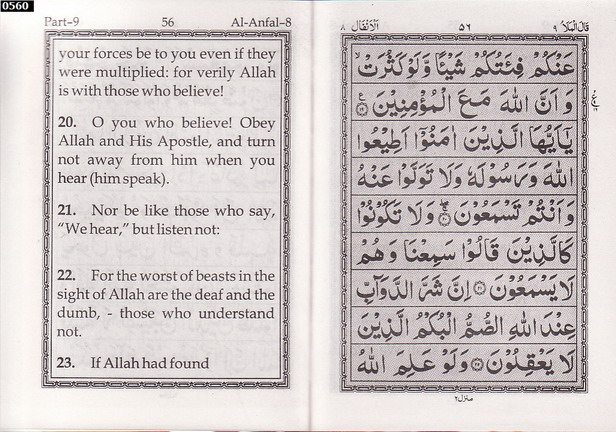 0560
Part-9 56 Al-Anfal-8
your forces be to you even if they
were multiplied: for verily Allah
is with those who believe!
20. O you who believe! Obey
Allah and His Apostle, and turn
not away from him when you
hear (him speak).
21. Nor be like those who say,
“We hear,” but listen not:
22. For the worst of beasts in the
sight of Allah are the deaf and the
dumb, - those who understand
not.
23. If Allah had found
قَالَ الْمَلَاُ ٩ ٥٦ اَلْاَنْفَال ٨
عَنْكُمْ فِئَتُكُمْ شَيْئًا وَّلَوْ كَثُرَتْ ۙ
وَ اَنَّ اللّٰهَ مَعَ الْمُؤْمِنِيْنَ ۧ ﴿١٩﴾
يٰۤاَيُّهَا الَّذِيْنَ اٰمَنُوْۤا اَطِيْعُوا
اللّٰهَ وَرَسُوْلَهٗ وَلَا تَوَلَّوْا عَنْهُ
وَاَنْتُمْ تَسْمَعُوْنَ ۖ ﴿٢٠﴾ وَلَا تَكُوْنُوْا
كَالَّذِيْنَ قَالُوْا سَمِعْنَا وَهُمْ
لَا يَسْمَعُوْنَ ﴿٢١﴾ اِنَّ شَرَّ الدَّوَآبِّ
عِنْدَ اللّٰهِ الصُّمُّ الْبُكْمُ الَّذِيْنَ
لَا يَعْقِلُوْنَ ﴿٢٢﴾ وَلَوْ عَلِمَ اللّٰهُ
منزل ٢